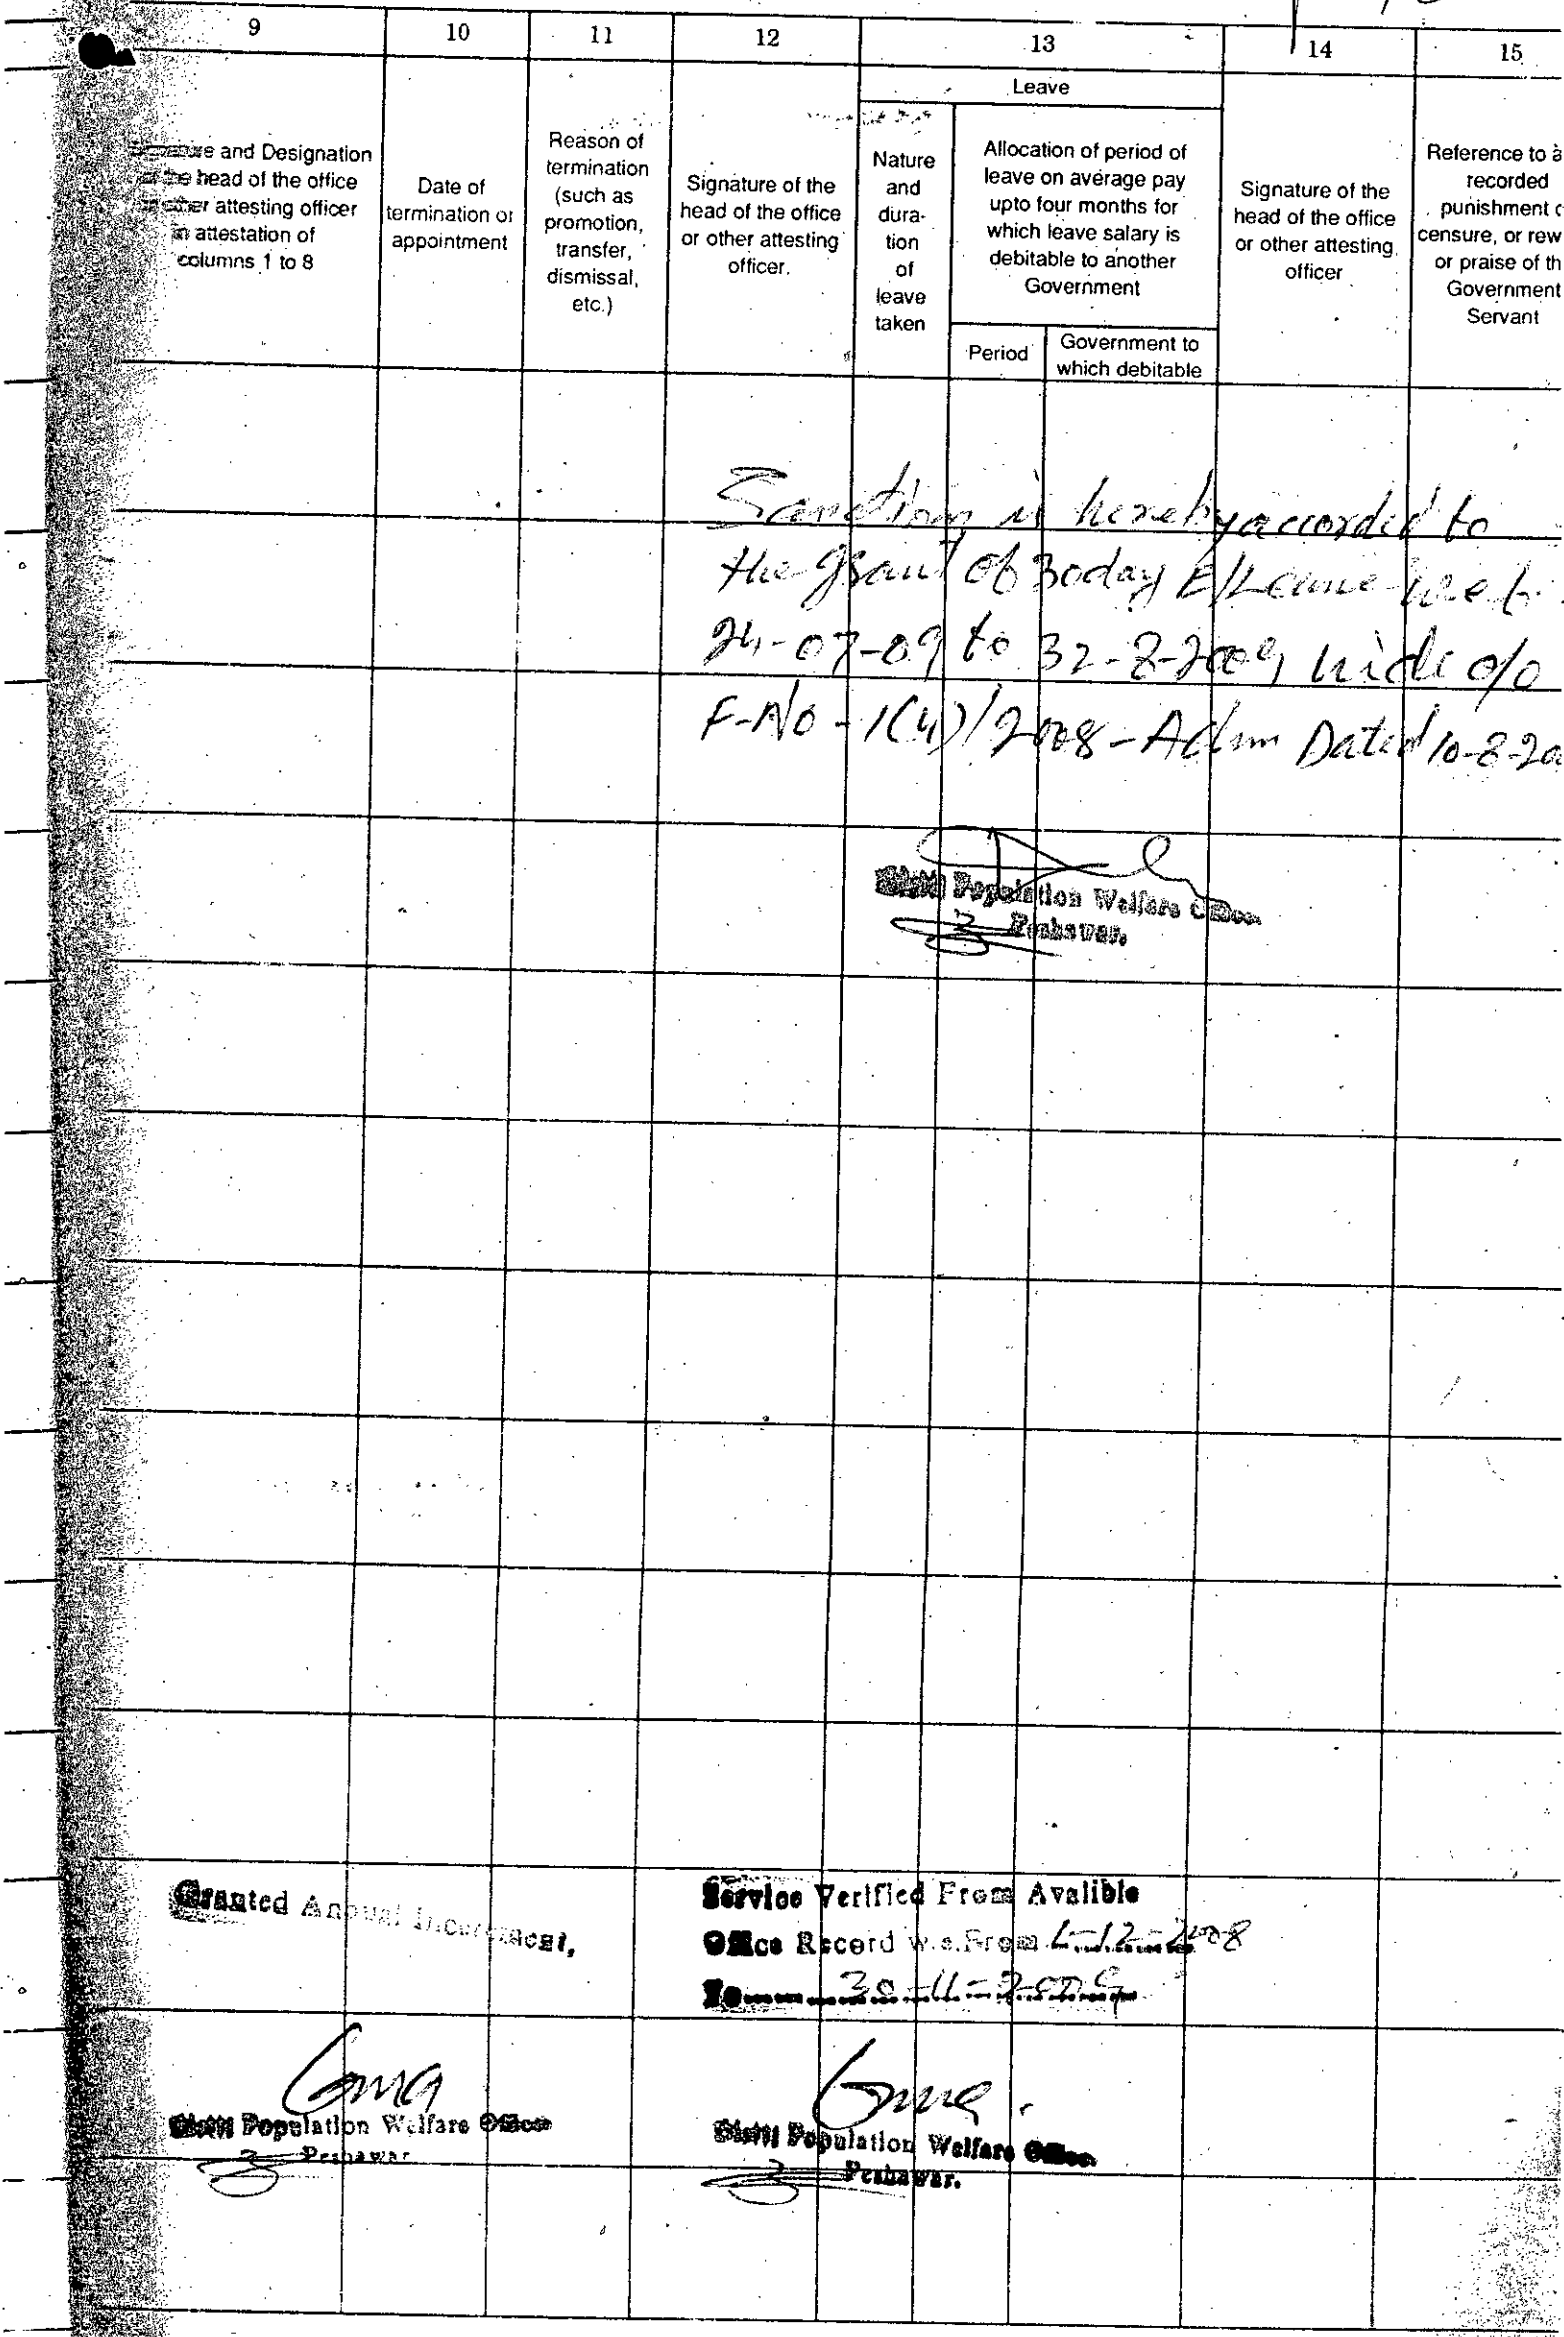 9 10 11 12 13 14 15
Leave
and Designation
the head of the office
other attesting officer
in attestation of
columns 1 to 8
Date of
termination or
appointment
Reason of
termination
(such as
promotion,
transfer,
dismissal,
etc.)
Signature of the
head of the office
or other attesting
officer.
Nature
and
dura-
tion
of
leave
taken
Allocation of period of
leave on average pay
upto four months for
which leave salary is
debitable to another
Government
Period
Government to
which debitable
Signature of the
head of the office
or other attesting
officer
Reference to a
recorded
punishment
censure, or rew
or praise of th
Government
Servant
Sanction is hereby accorded to
the grant of 30 day E/Leave
24-07-09 to 8-2009 vide o/o
F-No-1(4)/2008-Admn Dated 10-8-20
Population Welfare Office
Peshawar.
Granted Annual Increment,
Service Verified From Avalible
Office Record w.e.From 1-12-2008
To 30-11-2009
Population Welfare Office
Peshawar
Population Welfare Office
Peshawar.